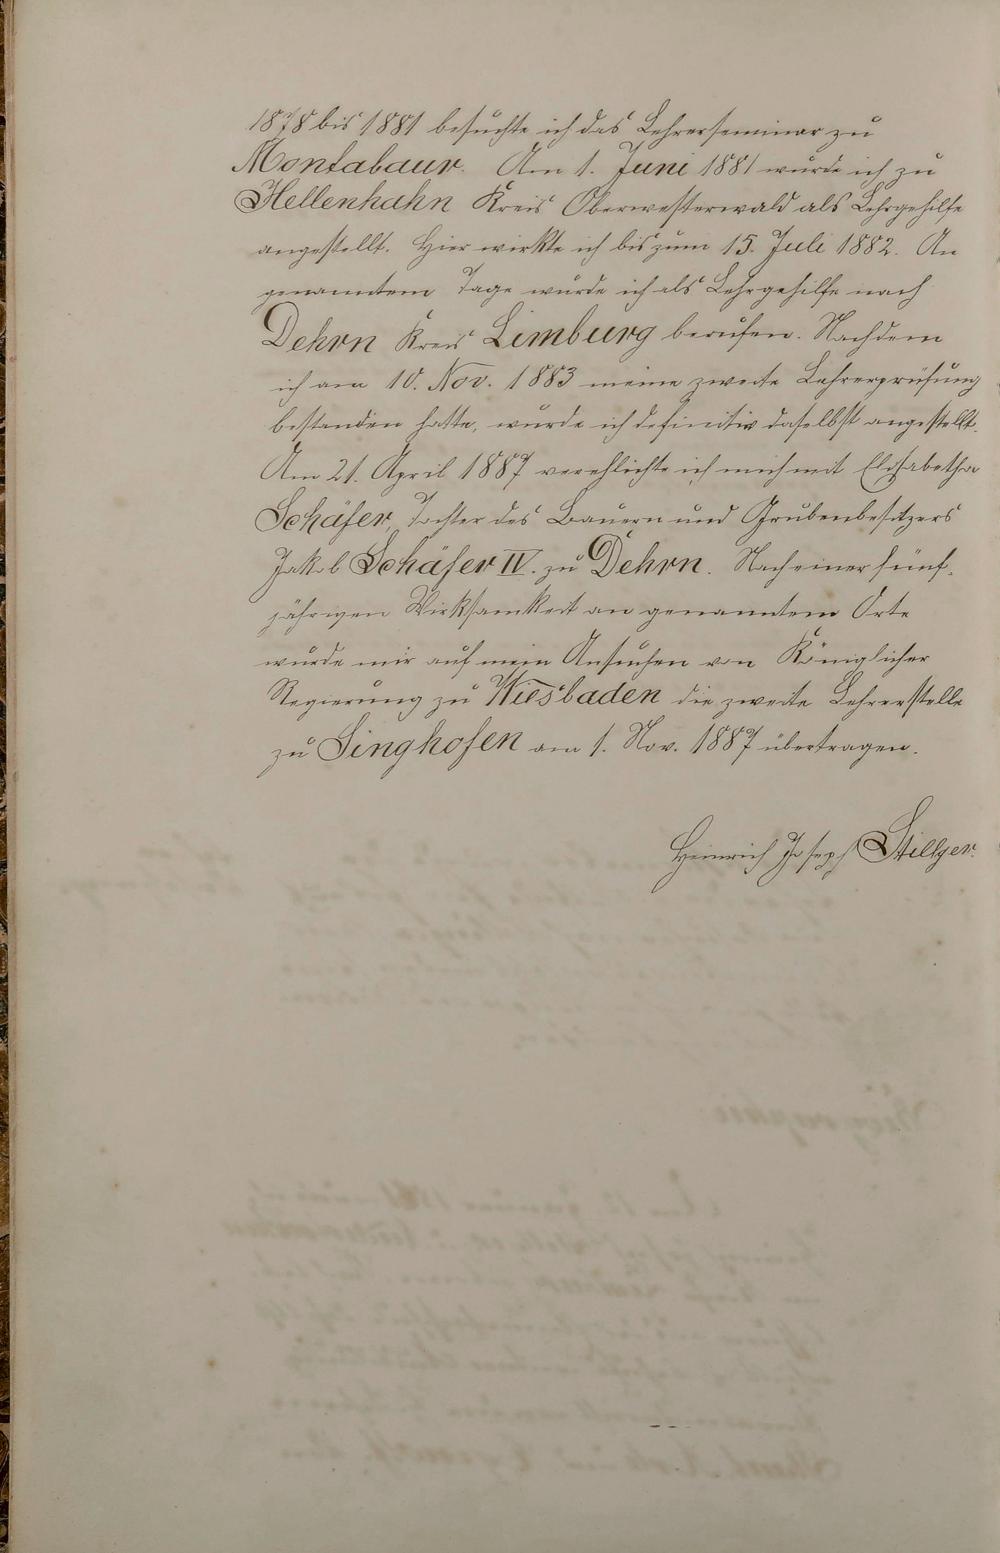 1878 bis 1881 besuchte ich das Lehrerseminar zu
Montabaur. Am 1. Juni 1881 wurde ich zu
Hellenhahn Kreis Oberwesterwald als Lehrgehilfe
angestellt. Hier wirkte ich bis zum 15. Juli 1882. An
genanntem Tage wurde ich als Lehrgehilfe nach
Dehrn Kreis Limburg berufen. Nachdem
ich am 10. Nov. 1883 meine zweite Lehrerprüfung
bestanden hatte, wurde ich definitiv daselbst angestellt.
Am 21. April 1887 verehlichte ich mich mit Elisabetha
Schäfer, Tochter des Bauern und Grubenbesitzers
Jakob Schäfer IV. zu Dehrn. Nach einer fünf-
jährigen Wirksamkeit an genanntem Orte
wurde mir auf mein Ansuchen von Königlicher
Regierung zu Wiesbaden die zweite Lehrerstelle
zu Singhofen am 1. Nov. 1887 übertragen.
Heinrich Joseph Stillger.